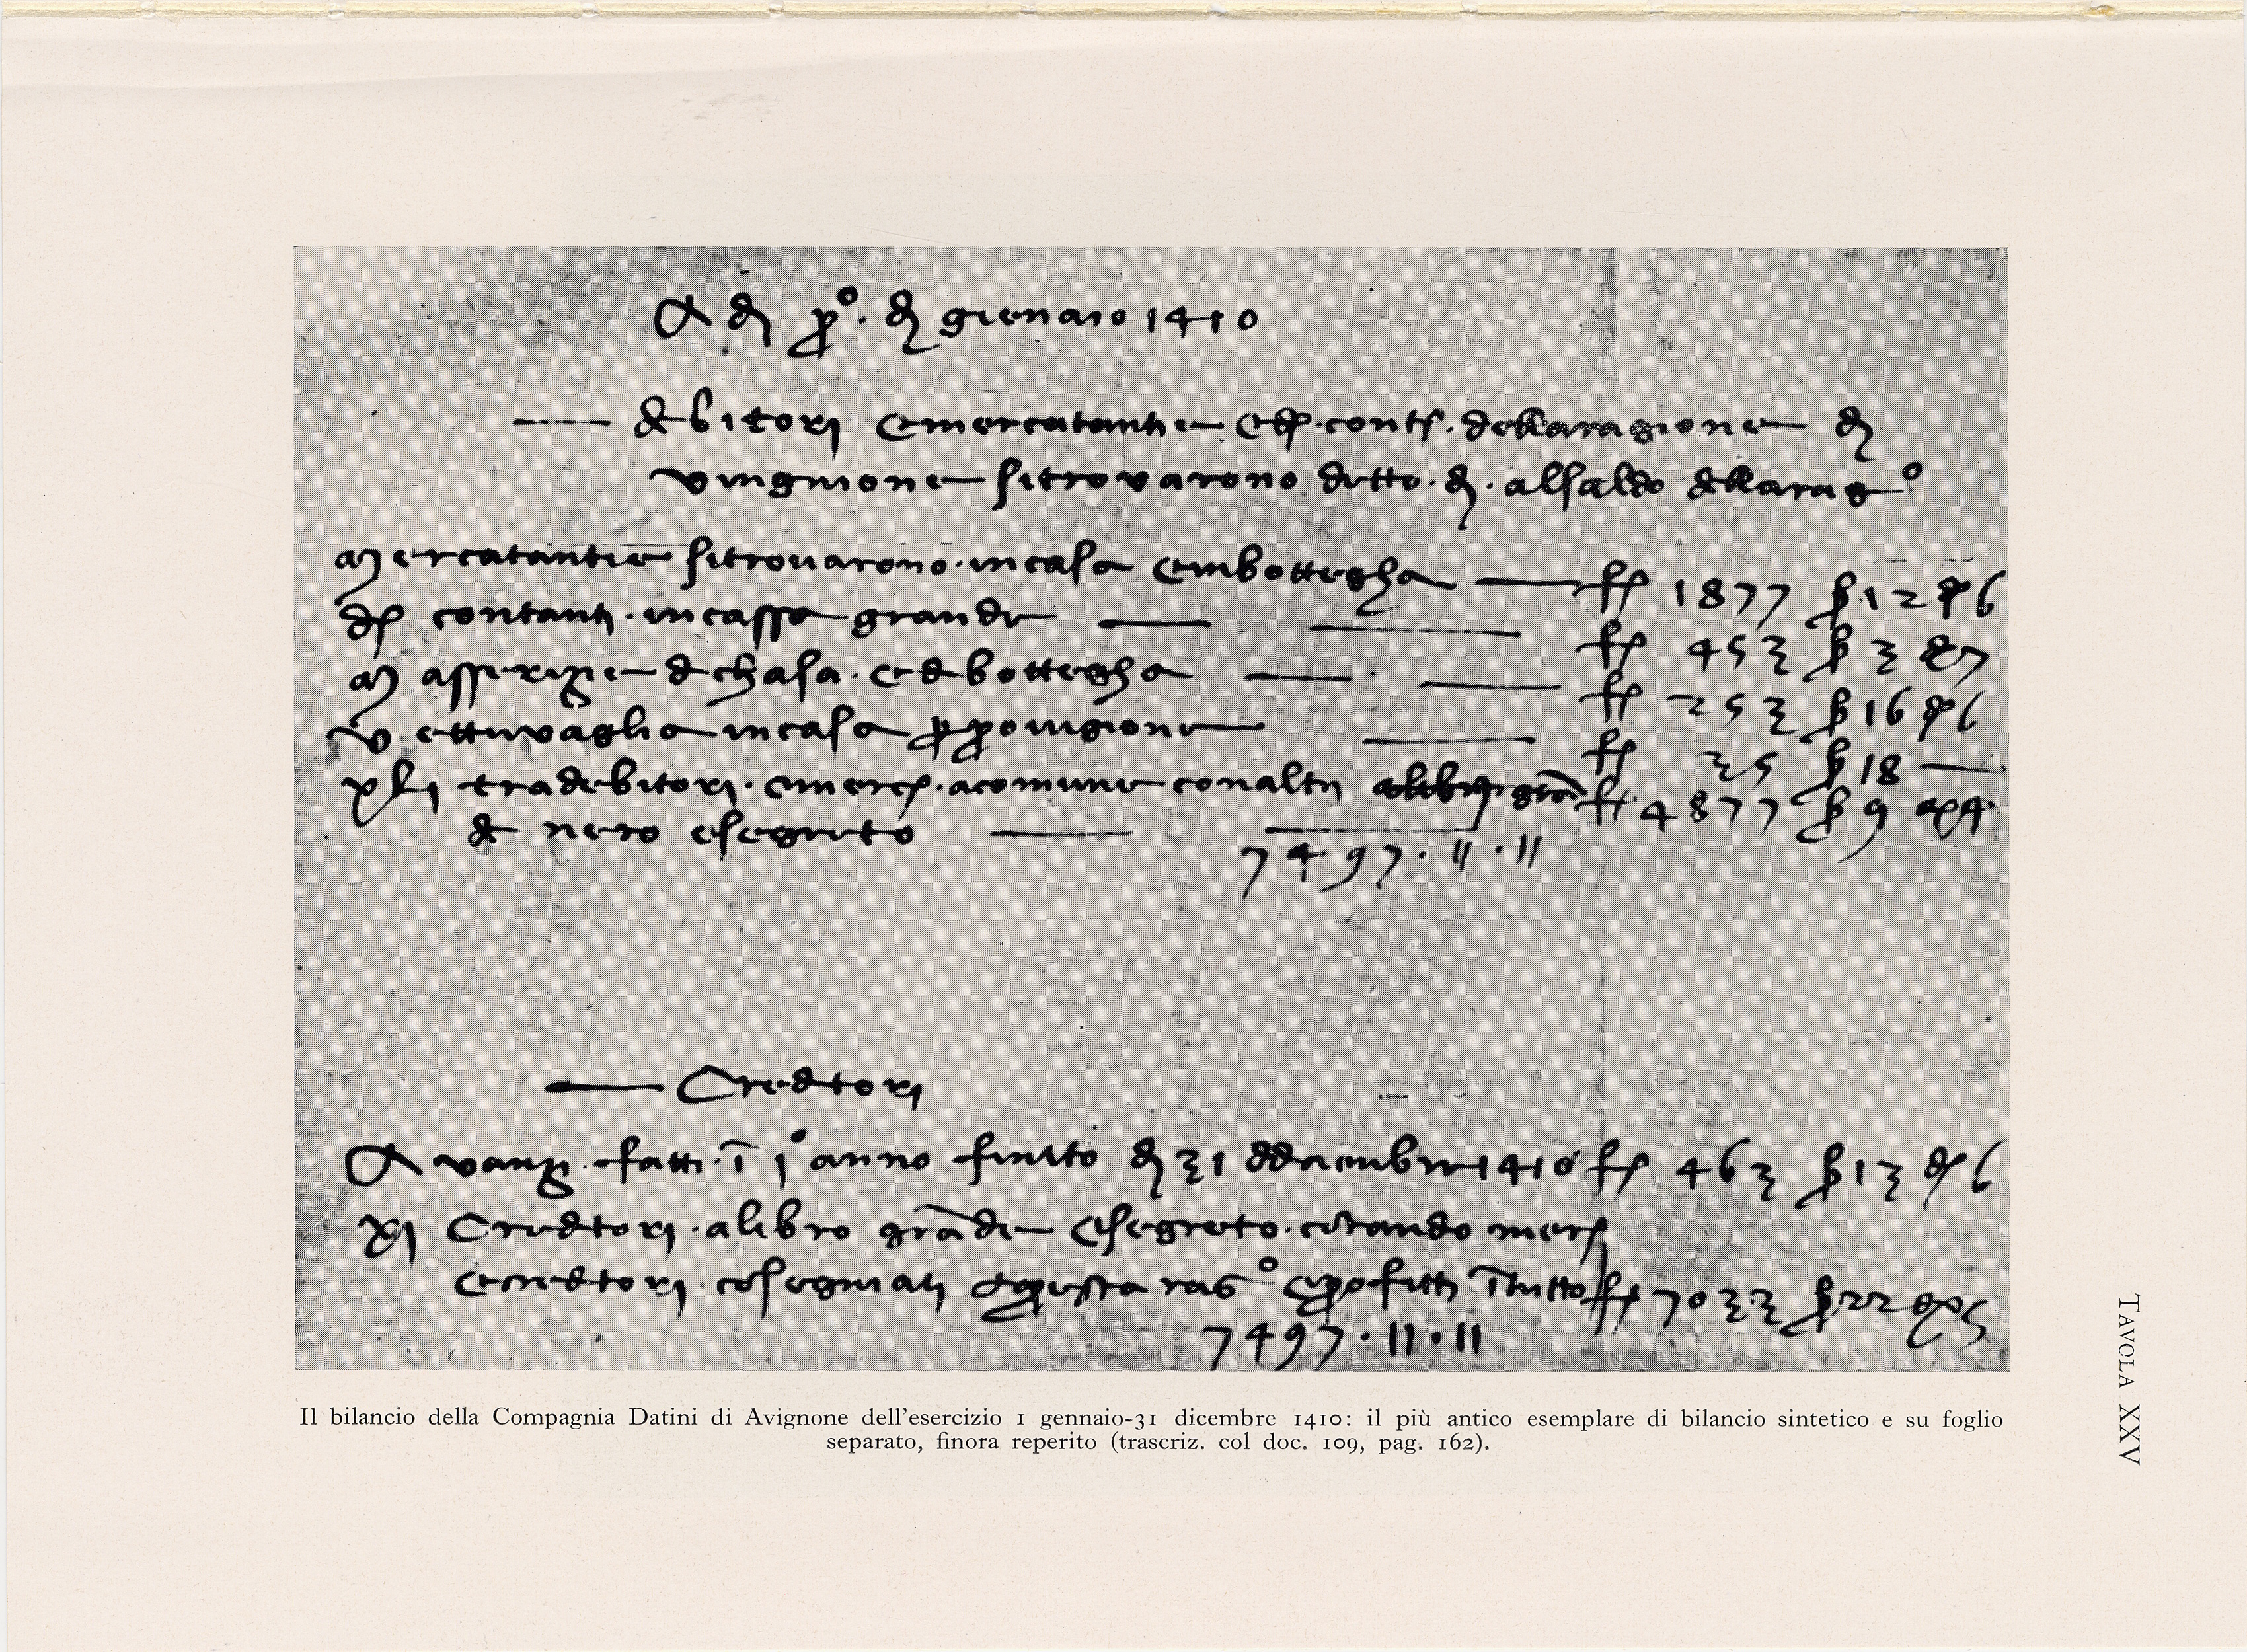 A dì pº. di gienaio 1410
debitori e merchatantie e d. cont. della ragione di
Vingnione si trovarono detto dì al saldo della ragº
Mercatantie si trovarono in casa e in bottegha f 1877 s 12 d 6
D contanti in cassa grande f 453 s 3 d 7
Masserizie di chasa e di bottegha f 253 s 16 d 6
Vettuvaglia in casa p provigione f 35 s 18
XLI tra debitori e merc. a comune con altri f 4877 s 9 d 4
nero e segreto
7497 · 11 · 11
Creditori
Avanzi fatti i 1º anno finito dì 31 di dicienbre 1410 f 463 s 13 d 6
XI Creditori a libro grāde e segreto contando mer
e creditori cosegniati questa ragº e profitti ī tutto f 7033 s 22 d 5
7497 · 11 · 11
Il bilancio della Compagnia Datini di Avignone dell'esercizio 1 gennaio-31 dicembre 1410: il più antico esemplare di bilancio sintetico e su foglio
separato, finora reperito (trascriz. col doc. 109, pag. 162).
TAVOLA XXV